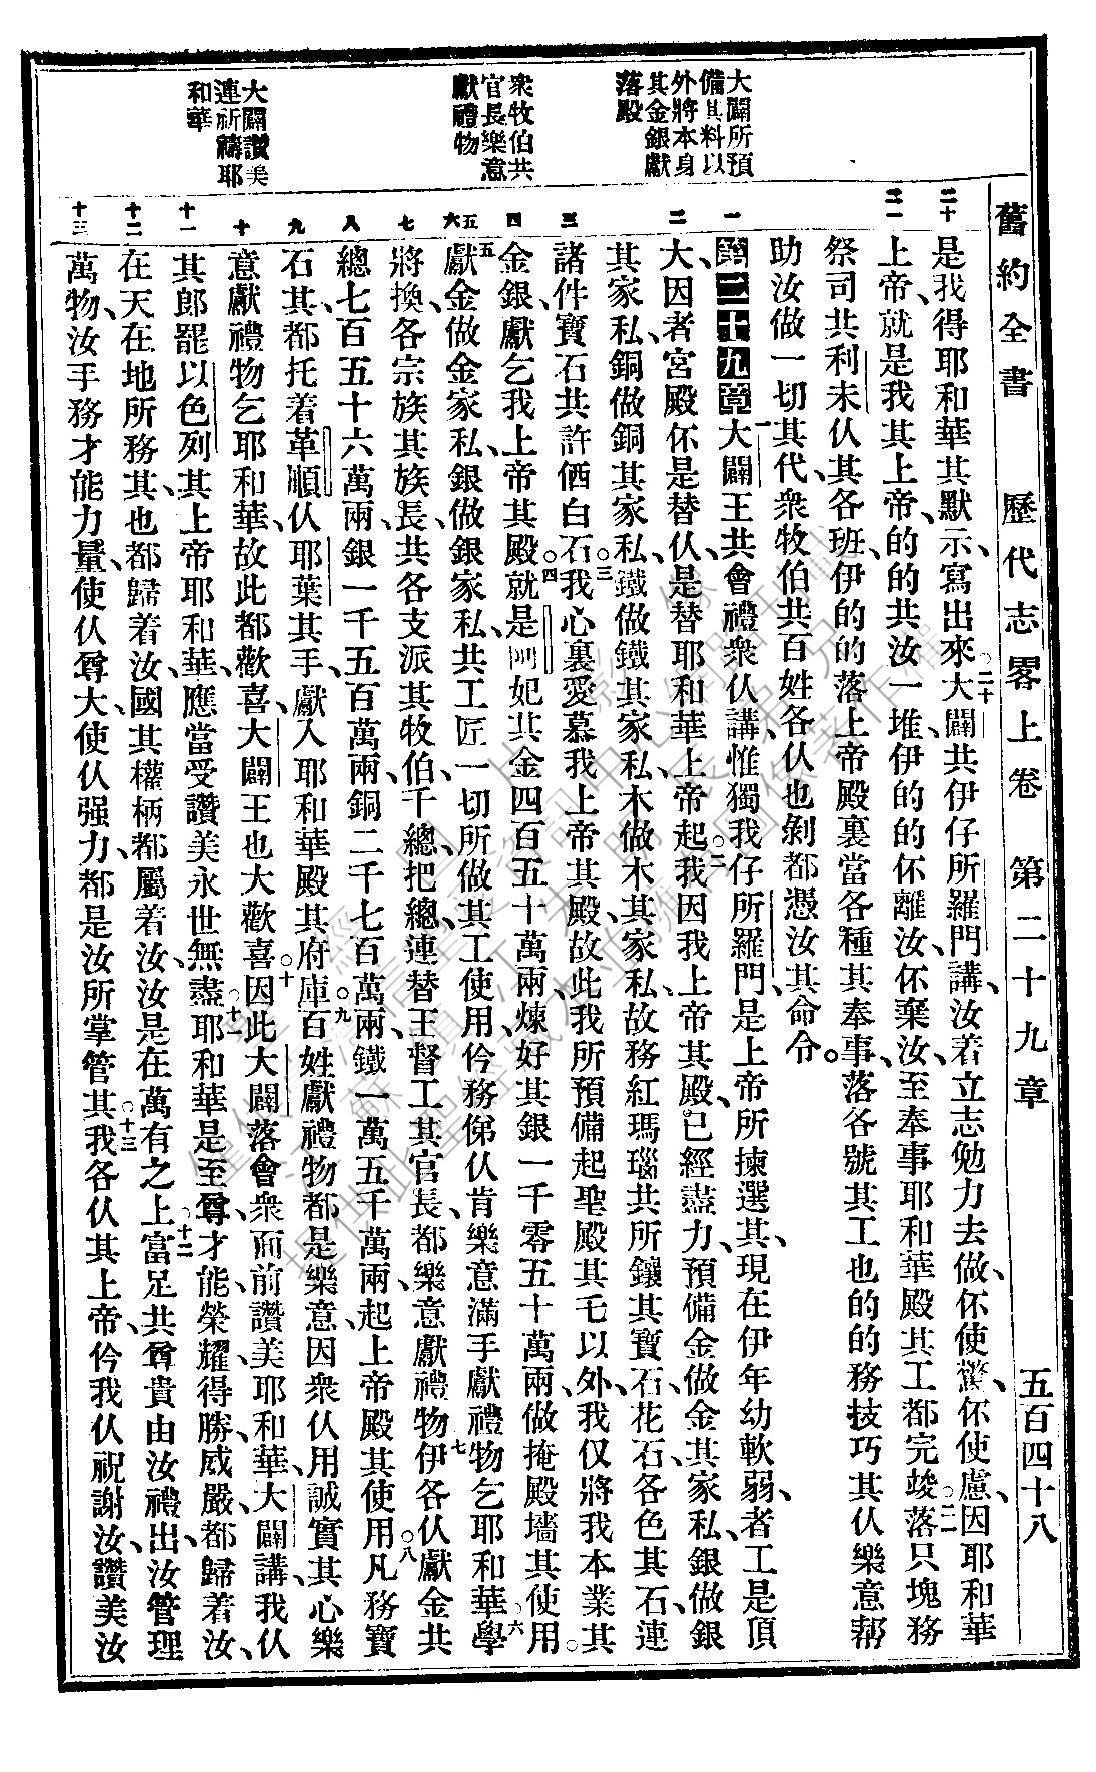 舊約全書 歷代志畧上卷 第二十九章 五百四十八
大闢所預
備其料以
外將本身
其金銀獻
落殿
衆牧伯共
官長樂意
獻禮物
大闢讚美
連祈禱耶
和華
二十
二一
一
二
三
四
五
六
七
八
九
十
十一
十二
十三
是我得耶和華其默示、寫出來。二十大闢共伊仔所羅門講、汝着立志勉力去做、伓使驚、伓使慮、因耶和華
上帝、就是我其上帝的的共汝一堆、伊的的伓離汝伓棄汝、至奉事耶和華殿其工都完竣。二一落只塊務
祭司共利未仈、其各班、伊的的落上帝殿裏當各種其奉事、落各號其工也的的務技巧其仈樂意帮
助汝做一切其代、衆牧伯共百姓各仈也剝都憑汝其命令。
第二十九章 一大闢王共會禮衆仈講、惟獨我仔所羅門、是上帝所揀選其、現在伊年幼軟弱、者工是頂
大、因者宮殿伓是替仈、是替耶和華上帝起。二我因我上帝其殿、已經盡力、預備金做金其家私、銀做銀
其家私、銅做銅其家私、鐵做鐵其家私、木做木其家私、故務紅瑪瑙共所鑲其寶石、花石、各色其石、連
諸件寶石共許価白石。三我心裏愛慕我上帝其殿、故此我所預備起聖殿其乇以外、我仅將我本業其
金銀、獻乞我上帝其殿。四就是阿妃其金四百五十萬兩、煉好其銀一千零五十萬兩、做掩殿墻其使用。
五獻金做金家私、銀做銀家私、共工匠一切所做其工使用、仱務俤仈肯樂意滿手獻禮物乞耶和華學。六
將換、各宗族其族長、共各支派其牧伯、千總、把總、連替王督工其官長、都樂意獻禮物。七伊各仈獻金共
總七百五十六萬兩、銀一千五百萬兩、銅二千七百萬兩、鐵一萬五千萬兩、起上帝殿其使用。八凡務寶
石其、都托着革順仈耶葉其手、獻入耶和華殿其府庫。九百姓獻禮物都是樂意、因衆仈用誠實其心樂
意獻禮物乞耶和華、故此都歡喜、大闢王也大歡喜。十因此大闢落會衆面前讚美耶和華、大闢講、我仈
其郎罷以色列其上帝耶和華、應當受讚美永世無盡。十一耶和華是至尊、才能、榮耀、得勝、威嚴、都歸着汝、
在天在地所務其、也都歸着汝、國其權柄都屬着汝、汝是在萬有之上。十二富足共尊貴、由汝禮出、汝管理
萬物、汝手務才能力量、使仈尊大、使仈强力、都是汝所掌管其。十三我各仈其上帝、仱我仈祝謝汝、讚美汝